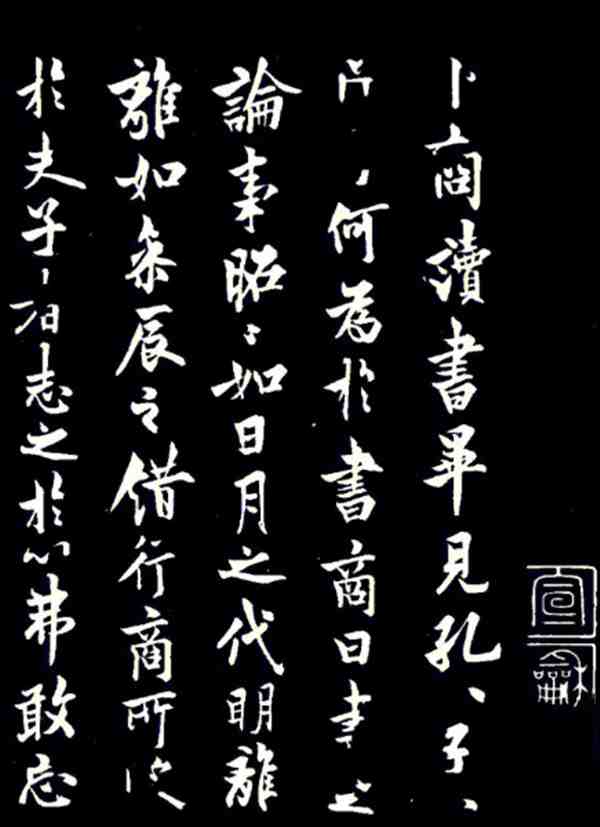 卜商讀書畢見孔〻子〻
何為於書商曰書之
論事昭〻如日月之代明離
離如參辰之錯行商所受
於夫子志之於心弗敢忘
宣龢